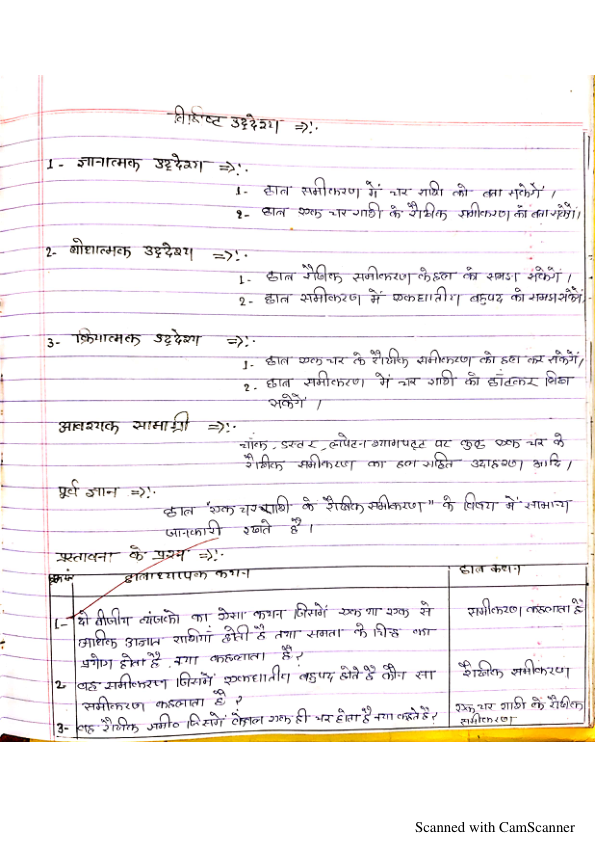 विशिष्ट उद्देश्य =>:-
1- ज्ञानात्मक उद्देश्य =>:-
1- छात्र समीकरण में चर राशी को बता सकेगें ।
2- छात्र एक चर राशी के रैखिक समीकरण को बता सकेगें।
2- बोधात्मक उद्देश्य =>:-
1- छात्र रैखिक समीकरण के हल को समझ सकेगें ।
2- छात्र समीकरण में एकघातीय बहुपद को समझ सकेगें
3- क्रियात्मक उद्देश्य =>:-
1- छात्र एक चर के रैखिक समीकरण को हल कर सकेगें,
2- छात्र समीकरण में चर राशी को छाँटकर लिख
सकेगें ।
आवश्यक सामाग्री =>:-
चॉक, डस्टर, लपेटन श्यामपट्ट पर कुछ एक चर के
रैखिक समीकरण का हल सहित उदाहरण आदि ।
पूर्व ज्ञान =>:-
छात्र "एक चर राशी के रैखिक समीकरण" के विषय में सामान्य
जानकारी रखते हैं ।
प्रस्तावना के प्रश्न =>:-
क्रम छात्राध्यापक कथन छात्र कथन
1- दो बीजीय व्यंजको का ऐसा कथन जिसमें एक या एक से समीकरण कहलाता है
अधिक अज्ञात राशियां होती है तथा समता के चिन्ह का
प्रयोग होता है, क्या कहलाता है ?
2 वह समीकरण जिसमें एकघातीय बहुपद होते है कौन सा रैखिक समीकरण
समीकरण कहलाता है ?
3- वह रैखिक समी० जिसमें केवल एक ही चर होता है क्या कहते है? एक चर राशी के रैखिक
समीकरण
Scanned with CamScanner